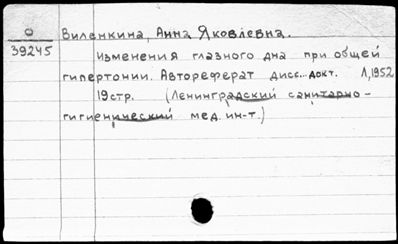 О
39245
Виленкина, Анна Яковлевна.
Изменения глазного дна при общей
гипертонии. Автореферат дисс... докт. Л, 1952
19стр. (Ленинградский санитарно-
гигиенический мед. ин-т.)